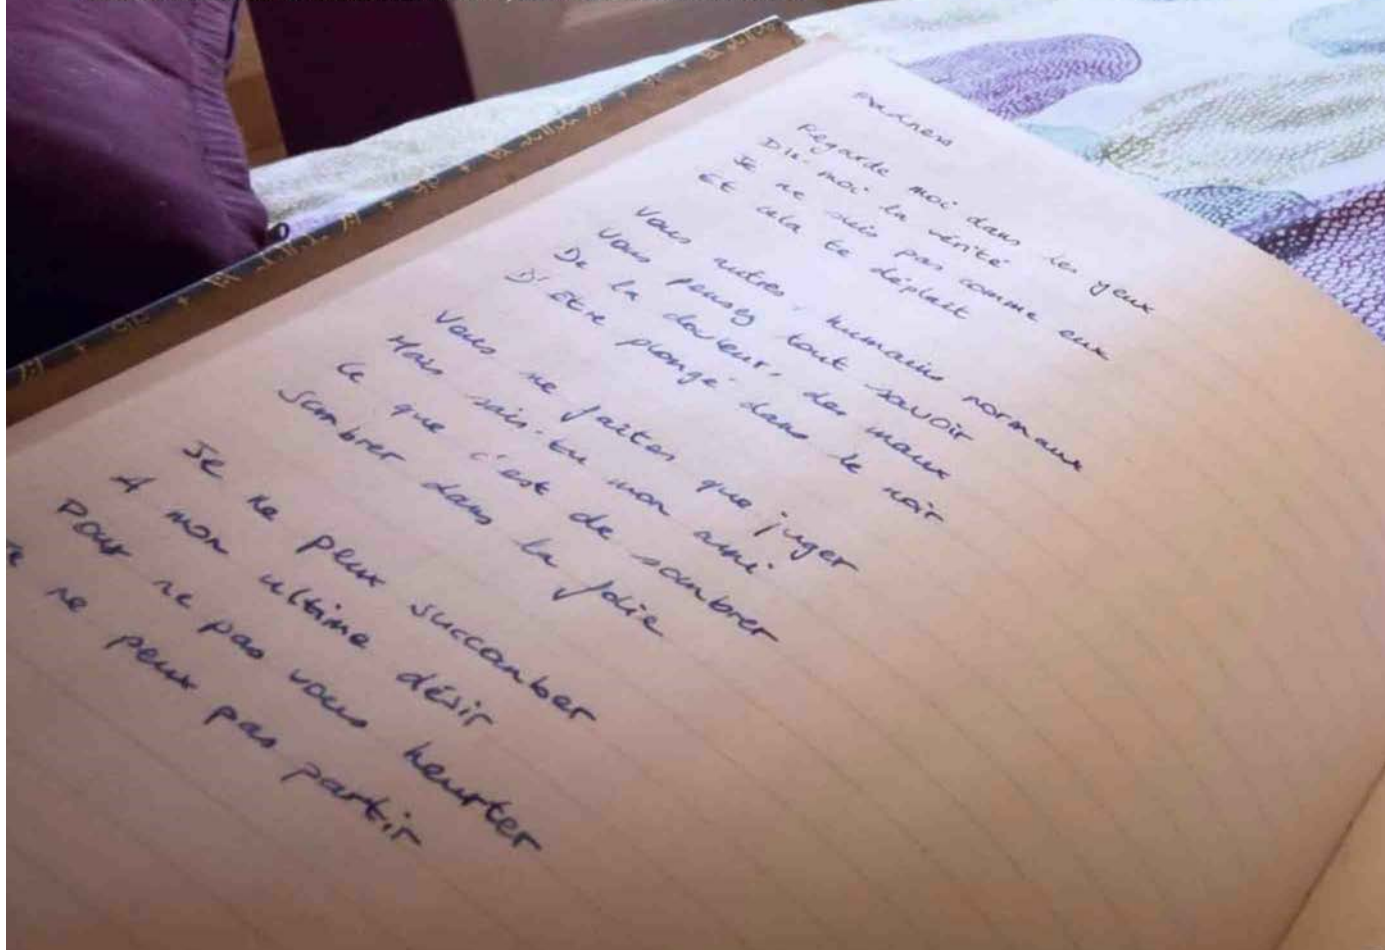 Madness
Regarde moi dans les yeux
Dis-moi la vérité
Je ne suis pas comme eux
Et cela te déplait
Vous autres, humains normaux
Vous pensez tout savoir
De la douleur, des maux
D'Etre plongé dans le noir
Vous ne faites que juger
Mais sais-tu mon ami
Ce que c'est de sombrer
Sombrer dans la folie
Je ne peux succomber
A mon ultime désir
Pour ne pas vous heurter
ne peux pas partir